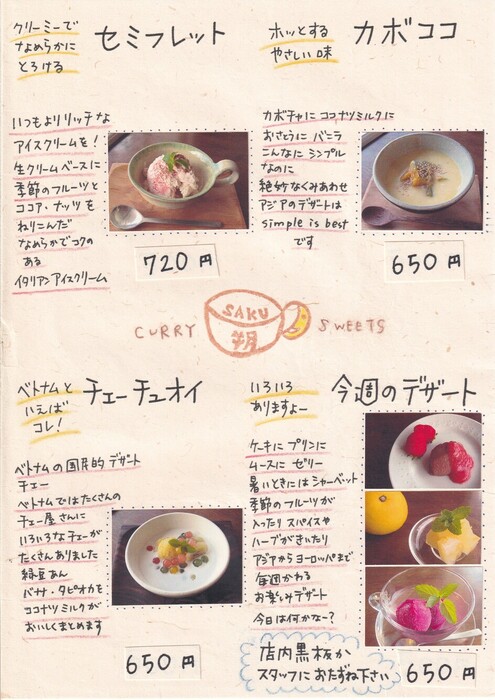 クリーミーで
なめらかに
とろける
セミフレット
いつもよりリッチな
アイスクリームを!
生クリームベースに
季節のフルーツと
ココア・ナッツを
ねりこんだ
なめらかでコクの
ある
イタリアンアイスクリーム
720円
ホッとする
やさしい味
カボココ
カボチャに ココナツミルクに
おさとうに バニラ
こんなに シンプル
なのに
絶妙なくみあわせ
アジアのデザートは
simple is best
です
650円
CURRY
SAKU
朔
SWEETS
ベトナムと
いえば
コレ!
チェーチュオイ
ベトナムの国民的デザート
チェー
ベトナムではたくさんの
チェー屋さんに
いろいろなチェーが
たくさんありました
緑豆あん
バナナ・タピオカを
ココナツミルクが
おいしくまとめます
650円
いろいろ
ありますよー
今週のデザート
ケーキに プリンに
ムースに ゼリー
暑いときにはシャーベット
季節のフルーツが
入ったり スパイスや
ハーブがきいたり
アジアからヨーロッパまで
毎週かわる
お楽しみデザート
今日は何かなー?
店内黒板か
スタッフにおたずね下さい
650円